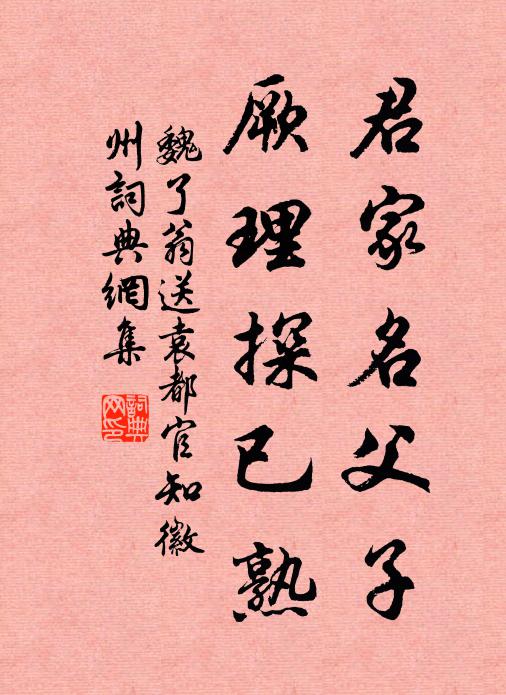 君家名父子
厥理探已熟
魏了翁送袁都官知徽
州詞典網集
詞典
网印